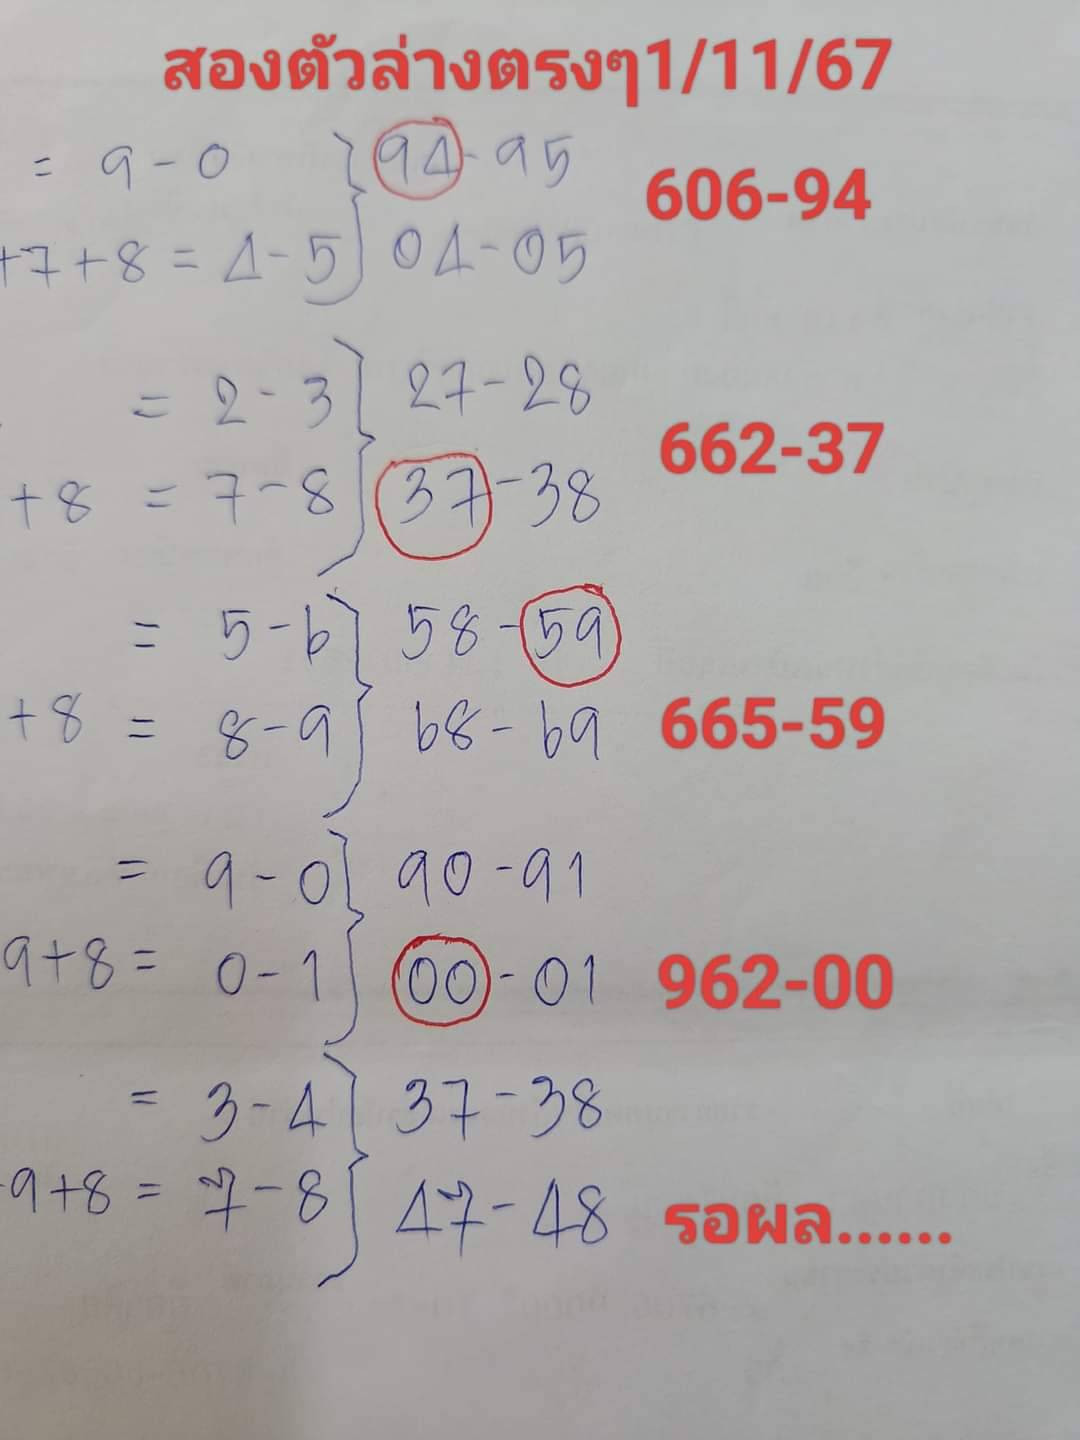 สองตัวล่างตรงๆ1/11/67
= 9 - 0 94 - 95
606-94
+7+8 = 4 - 5 04 - 05
= 2 - 3 27 - 28
662-37
+8 = 7 - 8 37 - 38
= 5 - 6 58 - 59
+8 = 8 - 9 68 - 69
665-59
= 9 - 0 90 - 91
9+8 = 0 - 1 00 - 01
962-00
= 3 - 4 37 - 38
9+8 = 7 - 8 47 - 48
รอผล......